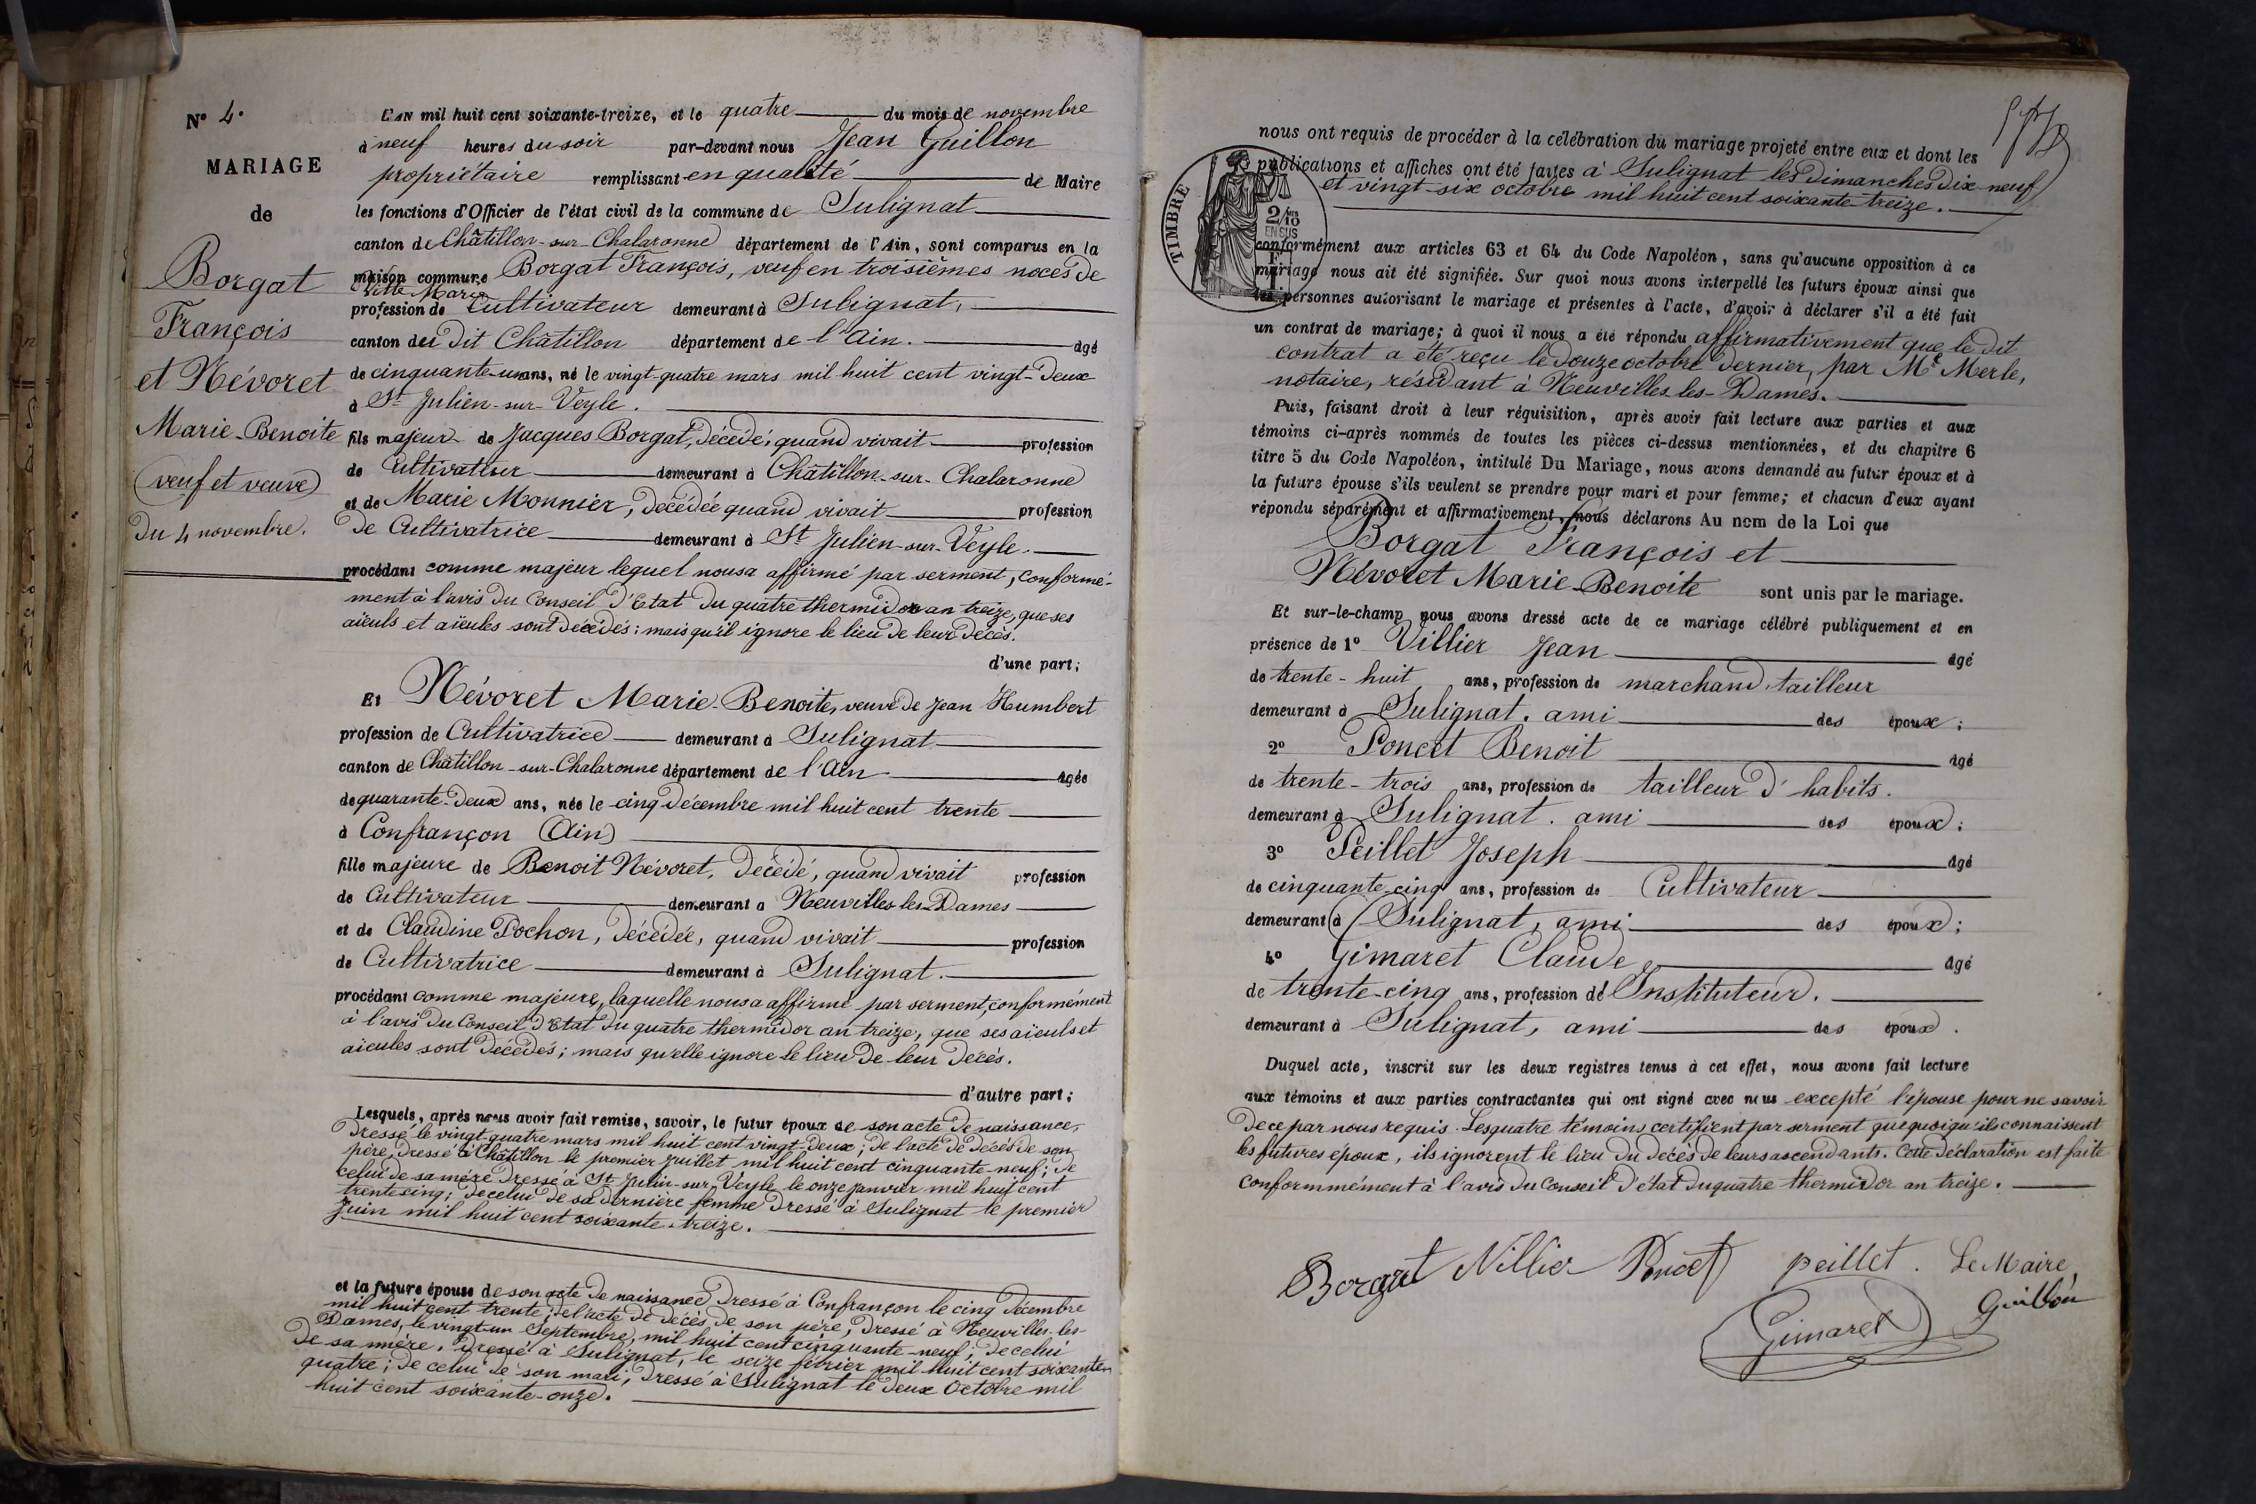 N° 4.
MARIAGE
de
Borgat
François
et Névoret
Marie-Benoite
(veuf et veuve)
du 4 novembre.
L'AN mil huit cent soixante-treize, et le quatre du mois de novembre
à neuf heures du soir par-devant nous Jean Guillon
propriétaire remplissant en qualité de Maire
les fonctions d'Officier de l'état civil de la commune de Sulignat
canton de Châtillon-sur-Chalaronne département de l'Ain, sont comparus en la
maison commune Borgat François, veuf en troisièmes noces de
Vitte Marie
profession de Cultivateur demeurant à Sulignat,
canton de dit Châtillon département de l'Ain. âgé
de cinquante-un ans, né le vingt-quatre mars mil huit cent vingt-deux
à St Julien-sur-Veyle.
fils majeur de Jacques Borgat, décédé, quand vivait profession
de Cultivateur demeurant à Châtillon-sur-Chalaronne
et de Marie Monnier, décédée quand vivait profession
de Cultivatrice demeurant à St Julien-sur-Veyle.
procédant comme majeur lequel nous a affirmé par serment, conformé-
ment à l'avis du Conseil d'Etat du quatre thermidor an treize, que ses
aïeuls et aïeules sont décédés; mais qu'il ignore le lieu de leur décès.
d'une part;
Et Névoret Marie-Benoite, veuve de Jean Humbert
profession de Cultivatrice demeurant à Sulignat
canton de Châtillon-sur-Chalaronne département de l'Ain âgée
de quarante-deux ans, née le cinq décembre mil huit cent trente
à Confrançon (Ain)
fille majeure de Benoit Névoret, décédé, quand vivait profession
de Cultivateur demeurant à Neuvilles-les-Dames
et de Claudine Pochon, décédée, quand vivait profession
de Cultivatrice demeurant à Sulignat.
procédant comme majeure, laquelle nous a affirmé par serment, conformément
à l'avis du Conseil d'Etat du quatre thermidor an treize, que ses aïeuls et
aïeules sont décédés; mais qu'elle ignore le lieu de leur décès.
d'autre part;
Lesquels, après nous avoir fait remise, savoir, le futur époux de son acte de naissance,
dressé le vingt-quatre mars mil huit cent vingt-deux; de l'acte de décès de son
père, dressé à Châtillon le premier Juillet mil huit cent cinquante-neuf; de
celui de sa mère dressé à St Julien-sur-Veyle le onze janvier mil huit cent
trente cinq; de celui de sa dernière femme dressé à Sulignat le premier
Juin mil huit cent soixante-treize.
et la future épouse de son acte de naissance dressé à Confrançon le cinq décembre
mil huit cent trente; de l'acte de décès de son père, dressé à Neuvilles-les-
Dames, le vingt-un Septembre, mil huit cent cinquante-neuf; de celui
de sa mère, dressé à Sulignat, le seize février mil huit cent soixante-
quatre; de celui de son mari, dressé à Sulignat le deux Octobre mil
huit cent soixante-onze.
nous ont requis de procéder à la célébration du mariage projeté entre eux et dont les
publications et affiches ont été faites à Sulignat les dimanches dix-neuf
et vingt-six octobre mil huit cent soixante-treize.
TIMBRE
2/10
EN SUS
conformément aux articles 63 et 64 du Code Napoléon, sans qu'aucune opposition à ce
mariage nous ait été signifiée. Sur quoi nous avons interpellé les futurs époux ainsi que
les personnes autorisant le mariage et présentes à l'acte, d'avoir à déclarer s'il a été fait
un contrat de mariage; à quoi il nous a été répondu affirmativement que le dit
contrat a été reçu le douze octobre dernier, par Me Merle,
notaire, résidant à Neuvilles-les-Dames.
Puis, faisant droit à leur réquisition, après avoir fait lecture aux parties et aux
témoins ci-après nommés de toutes les pièces ci-dessus mentionnées, et du chapitre 6
titre 5 du Code Napoléon, intitulé Du Mariage, nous avons demandé au futur époux et à
la future épouse s'ils veulent se prendre pour mari et pour femme; et chacun d'eux ayant
répondu séparément et affirmativement, nous déclarons Au nom de la Loi que
Borgat François et
Névoret Marie-Benoite sont unis par le mariage.
Et sur-le-champ nous avons dressé acte de ce mariage célébré publiquement et en
présence de 1° Villier Jean âgé
de trente-huit ans, profession de marchand tailleur
demeurant à Sulignat, ami des époux;
2° Poncet Benoit âgé
de trente-trois ans, profession de tailleur d'habits.
demeurant à Sulignat, ami des époux;
3° Peillet Joseph âgé
de cinquante-cinq ans, profession de Cultivateur
demeurant à Sulignat, ami des époux;
4° Gimaret Claude âgé
de trente-cinq ans, profession de Instituteur.
demeurant à Sulignat, ami des époux.
Duquel acte, inscrit sur les deux registres tenus à cet effet, nous avons fait lecture
aux témoins et aux parties contractantes qui ont signé avec nous excepté l'épouse pour ne savoir
de ce par nous requis. Les quatre témoins certifient par serment que quoiqu'ils connaissent
les futures époux, ils ignorent le lieu du décès de leurs ascendants. Cette déclaration est faite
conformmément à l'avis du Conseil d'état du quatre thermidor an treize.
Borgat Villier Poncet peillet. Le Maire,
Gimaret Guillon